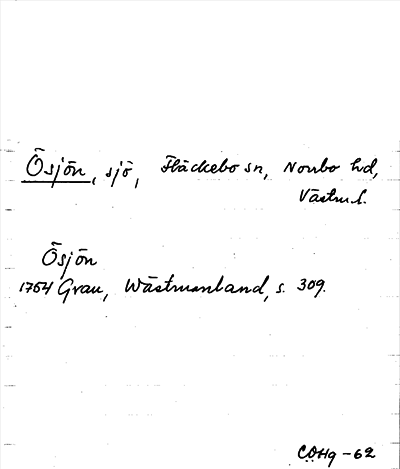 Ösjön, sjö, Fläckebo sn, Norrbo hd,
Västm.l.
Ösjön
1754 Grau, Wästmanland, s. 309.
COHg -62